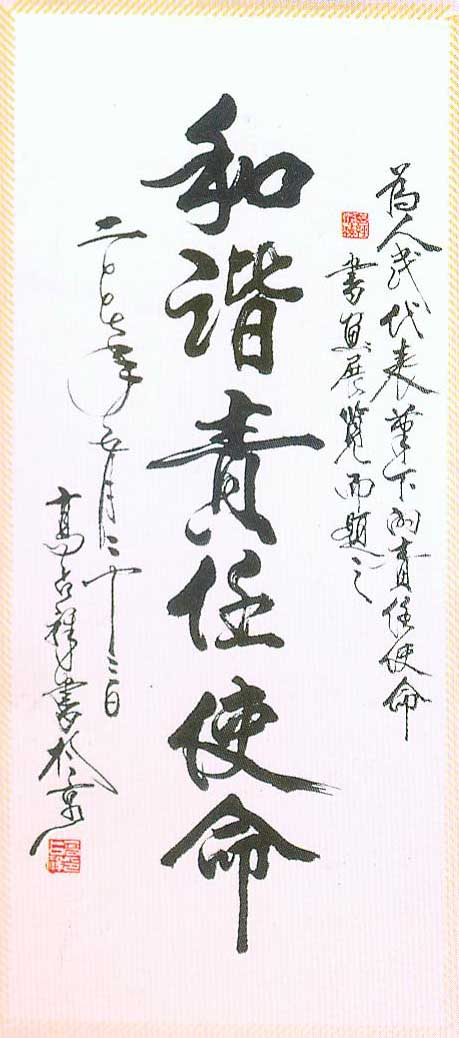 为人民代表笔下的责任使命
书画展览而题之
和谐责任使命
二〇〇七年五月二十三日
高占祥书于京